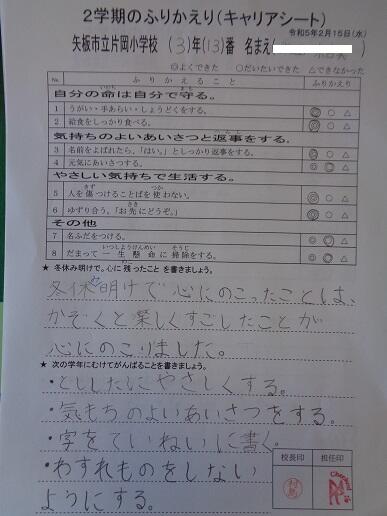 2学期のふりかえり(キャリアシート)
令和5年2月15日(水)
矢板市立片岡小学校 (3)年(13)番 名まえ(
◎よくできた ○だいたいできた △できなかった
No. ふりかえること ふりかえり
自分の命は自分で守る。
1 うがい・手あらい・しょうどくをする。 ◎ ○ △
2 給食をしっかり食べる。 ◎ ○ △
気持ちのよいあいさつと返事をする。
3 名前をよばれたら、「はい。」としっかり返事をする。 ◎ ○ △
4 元気にあいさつする。 ◎ ○ △
やさしい気持ちで生活する。
5 人を傷つけることばを使わない。 ◎ ○ △
6 ゆずり合う。「お先にどうぞ。」 ◎ ○ △
その他
7 名ふだをつける。 ◎ ○ △
8 だまって一生懸命に掃除をする。 ◎ ○ △
★ 冬休み明けで。心に残ったことを書きましょう。
冬休み明けで心にのこったことは、
かぞくと楽しくすごしたことが
心にのこりました。
★ 次の学年にむけてがんばることを書きましょう。
・としたにやさしくする。
・気もちのよいあいさつをする。
・字をていねいに書く。
・わすれものをしない
ようにする。
校長印 担任印